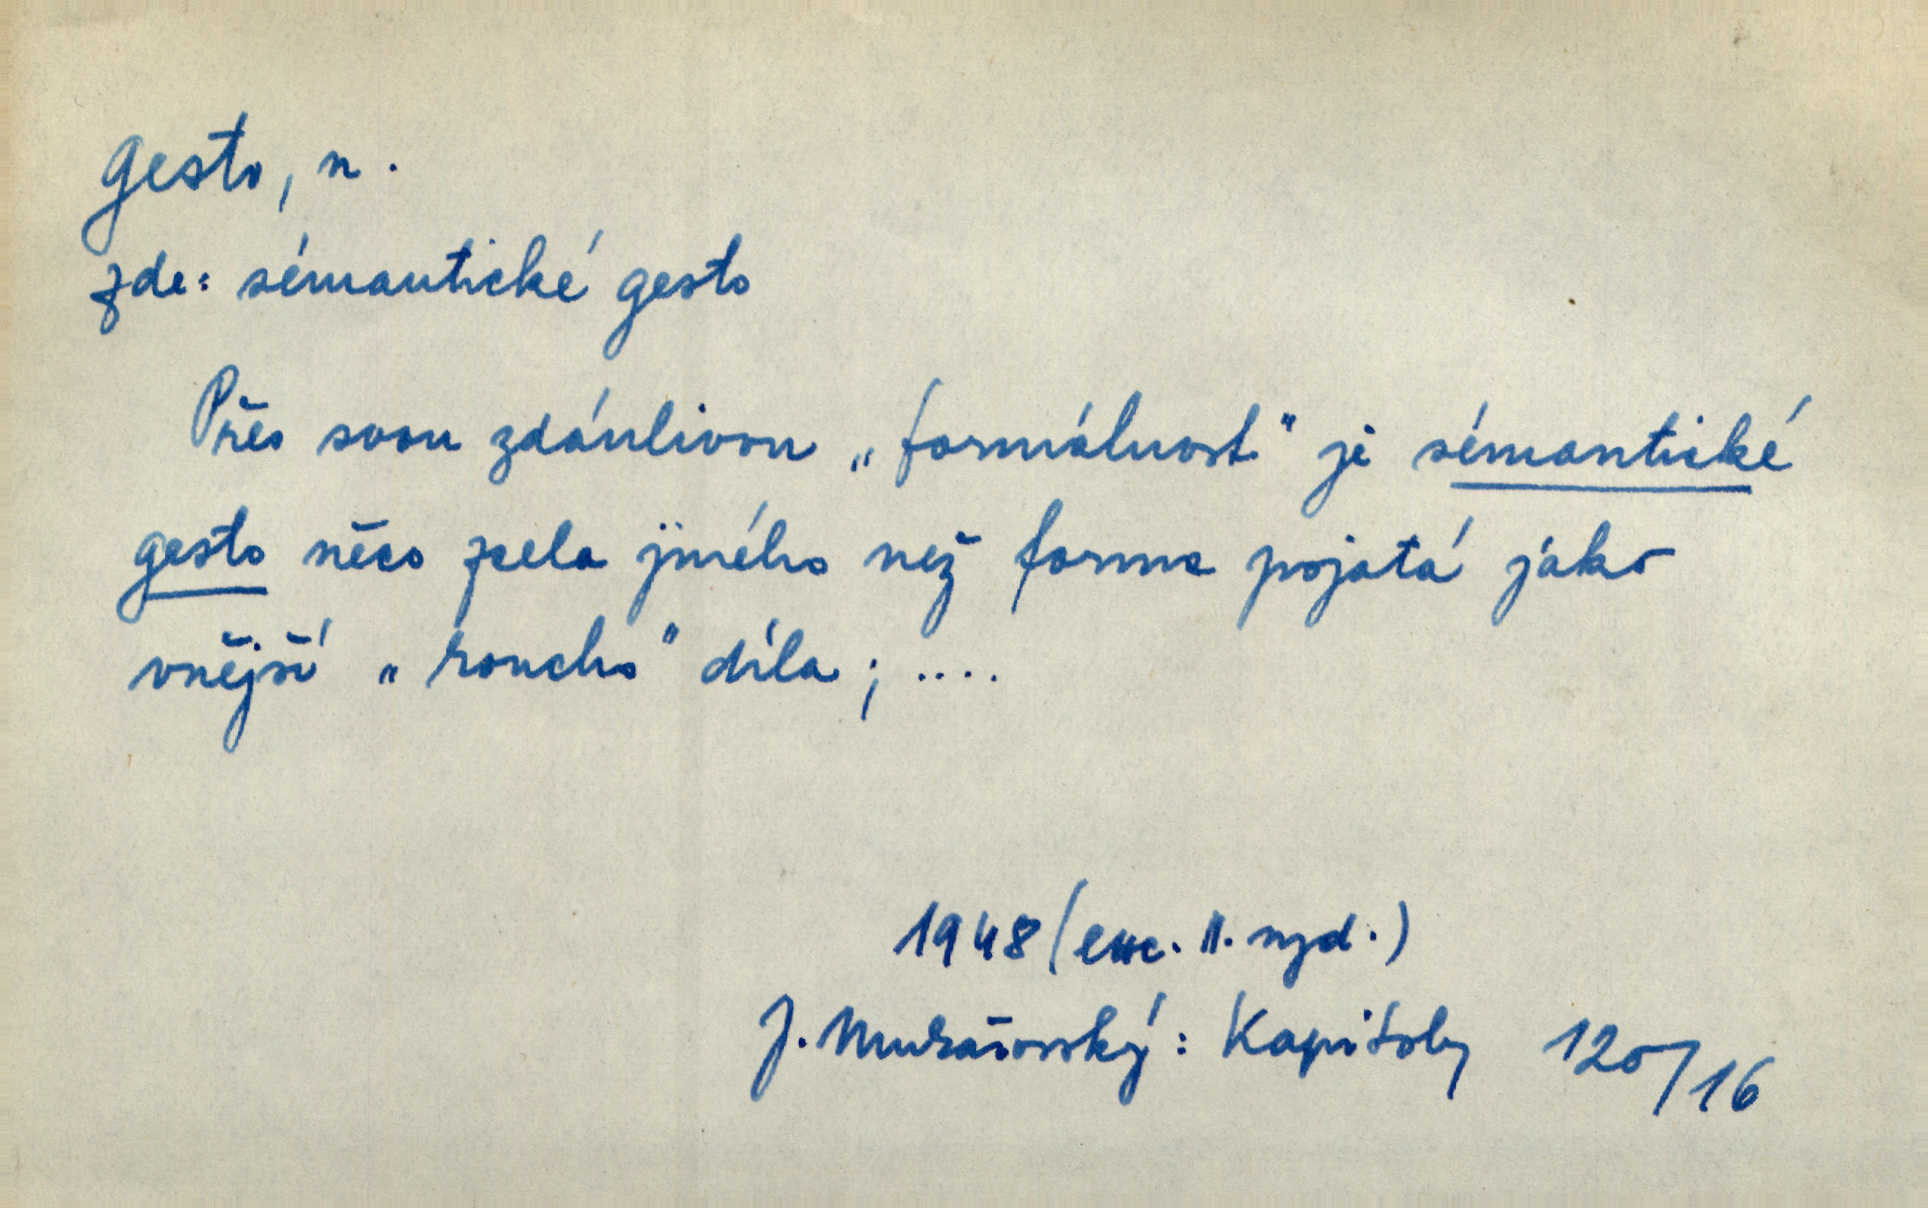 gesto, n.
zde: sémantické gesto
Přes svou zdánlivou „formálnost" je sémantické
gesto něco zcela jiného než forma pojatá jako
vnější „roucho" díla; ....
1948 (exc. II. vyd.)
J. Mukařovský: Kapitoly 120/16